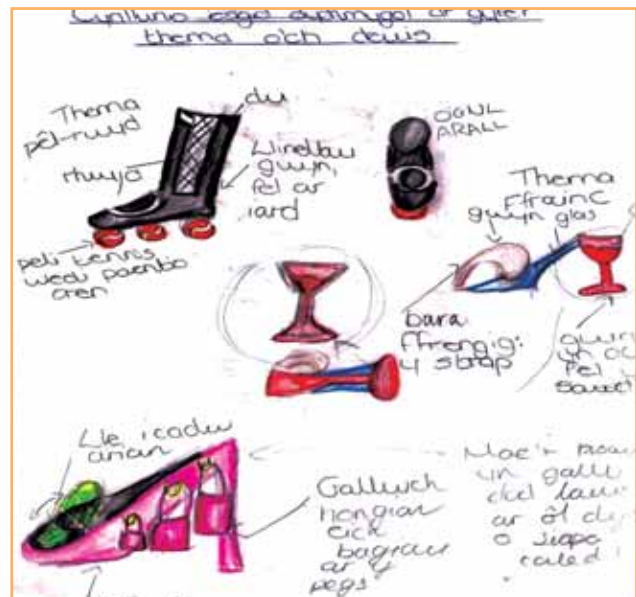 Cynllunio esgid ddychmygol ar gyfer
thema o'ch dewis
Thema
pêl-rwyd
du
rhwyd
llinellau
gwyn,
fel ar
iard
peli tennis
wedi peintio
oren
OGWL
ARALL
Thema
Ffrainc
gwyn glas
bara
ffrengig:
y strap
gwin
yn
fel
Lle i cadw
arian
Gallwch
hongian
eich
bagiau
ar y
pegs
Mae'r
yn gallu
dod lawr
ar ôl
o siopa
caled!